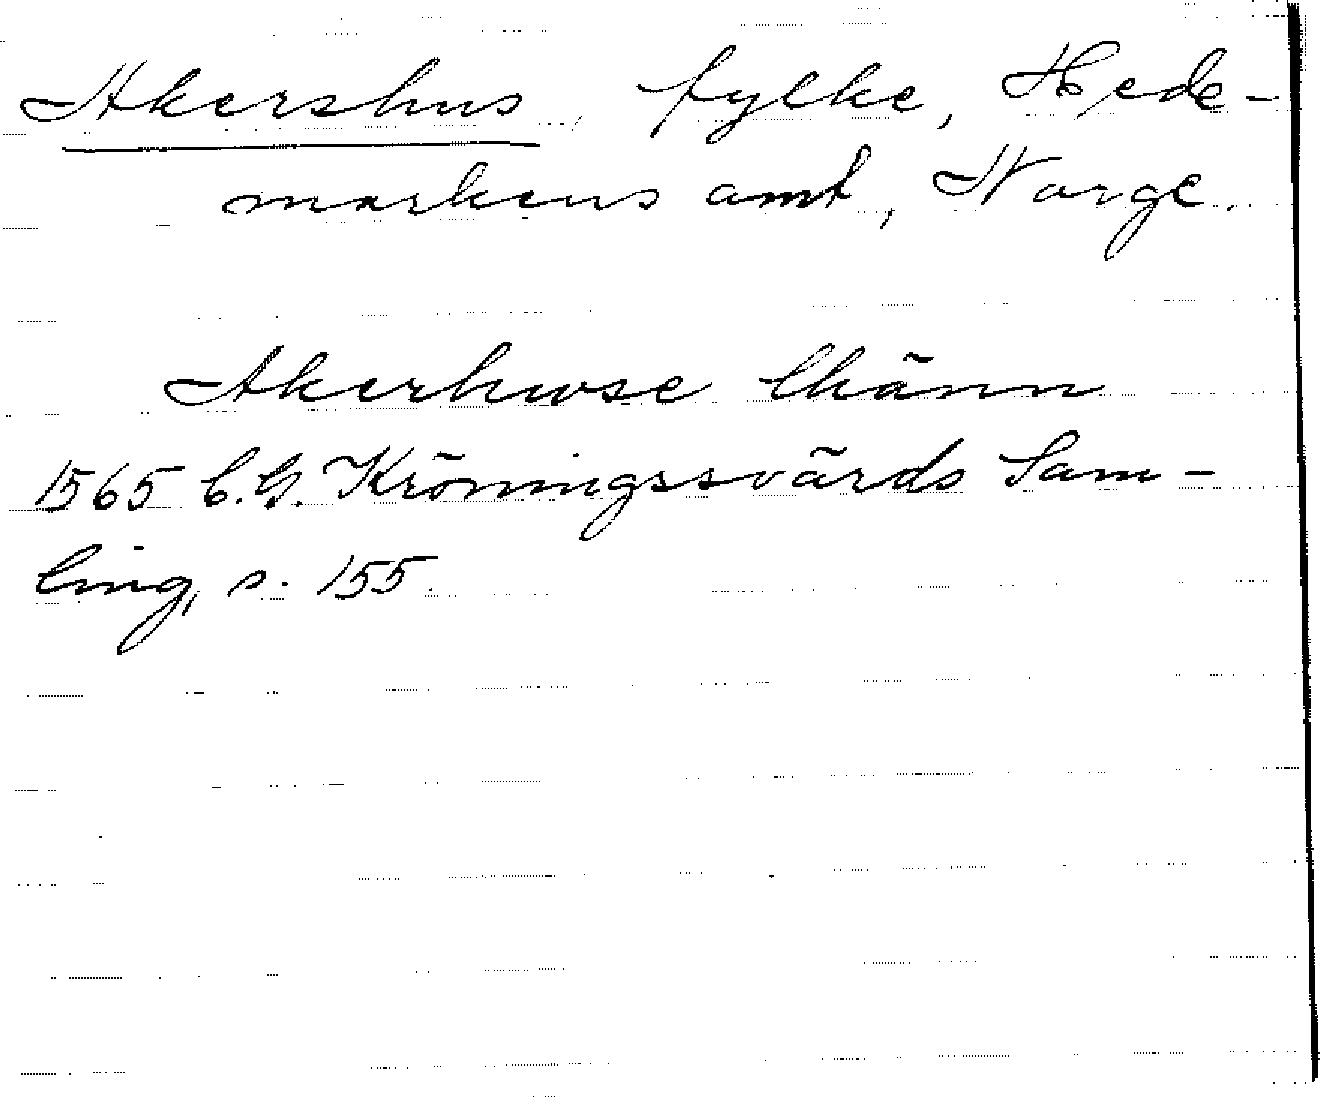 Akershus fylke, Hede-
markens amt, Norge.
Akerhwse lhänn
1565 C.G. Kröningssvärds Sam-
ling, s. 155.